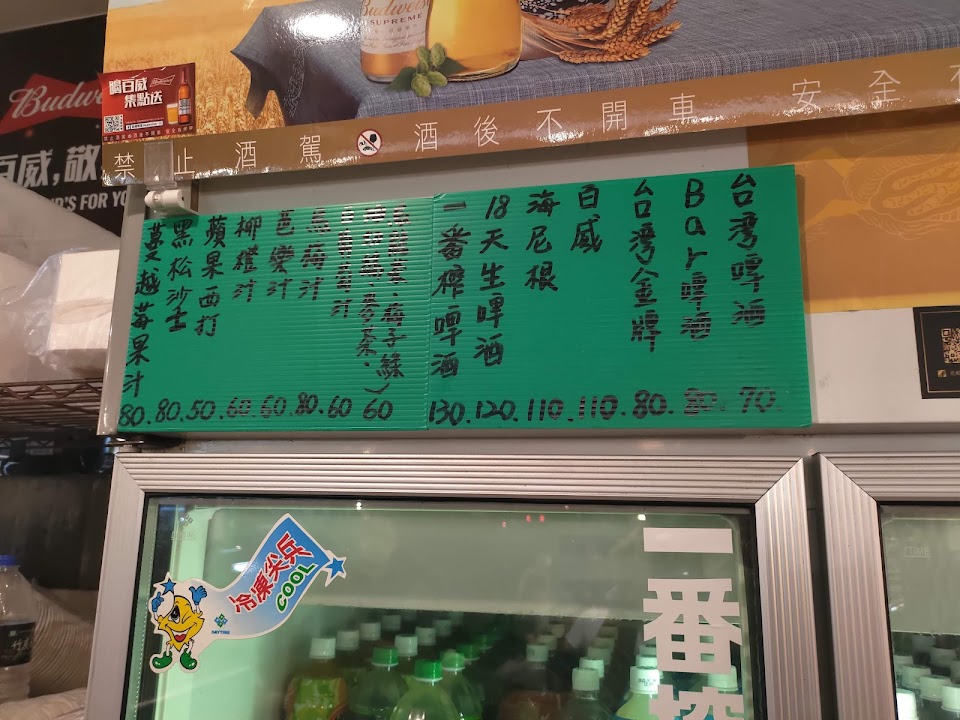 Budweiser
SUPREME
喝百威
集點送
Budw
百威,敬
D'S FOR YO
禁止酒駕 酒後不開車 安全
台灣啤酒 70.
Bar啤酒 80.
台灣金牌 80.
百威 110.
海尼根 110.
18天生啤酒 120.
一番榨啤酒 130.
梅子綠) 60
麥茶.
汁 60
烏梅汁 80.
芭樂汁 60.
椰檬汁 60.
蘋果西打 50.
黑松沙士 80.
蔓越莓果汁 80.
冷凍尖兵
COOL
一番搾